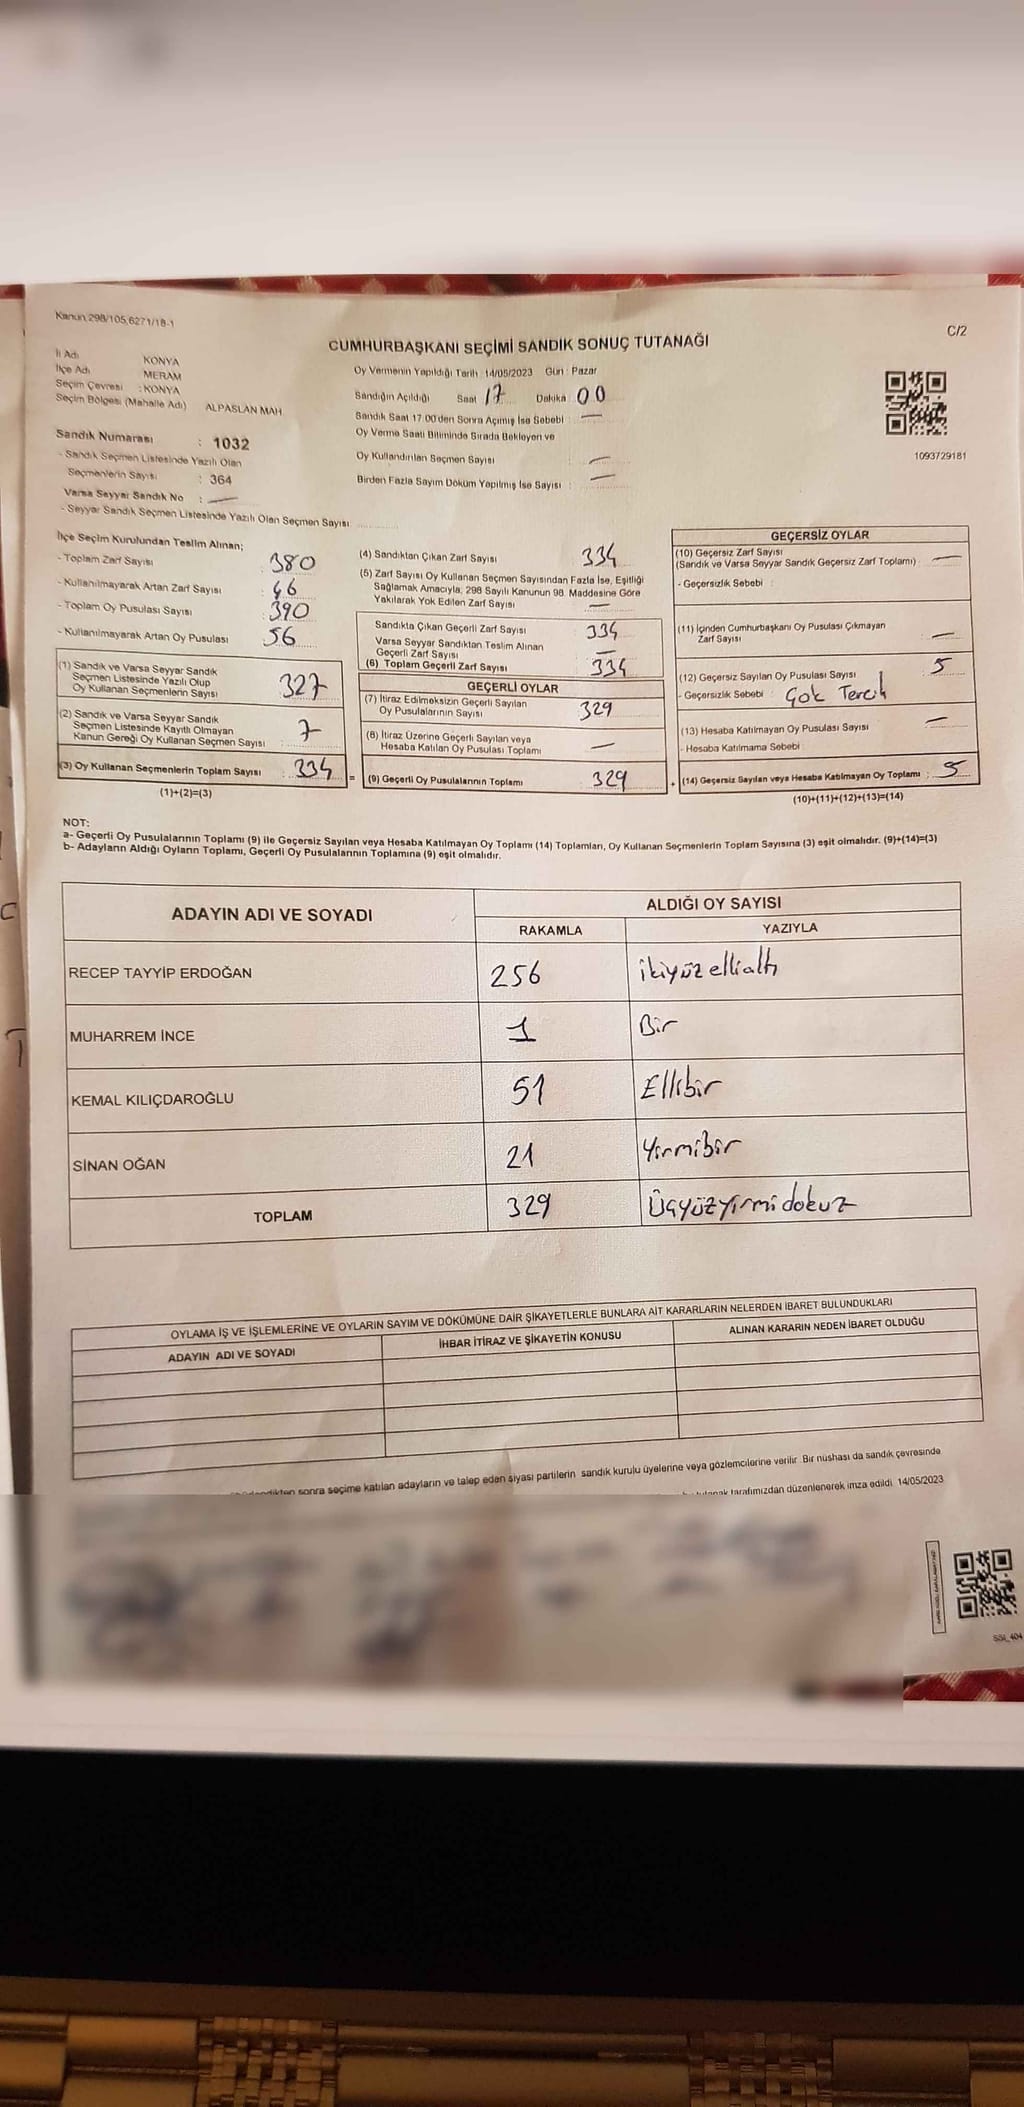 Kanun 298/105,6271/18-1
C/2
CUMHURBAŞKANI SEÇİMİ SANDIK SONUÇ TUTANAĞI
İl Adı KONYA
İlçe Adı MERAM
Seçim Çevresi : KONYA
Seçim Bölgesi (Mahalle Adı) ALPASLAN MAH
Sandık Numarası : 1032
- Sandık Seçmen Listesinde Yazılı Olan
Seçmenlerin Sayısı : 364
Varsa Seyyar Sandık No : —
- Seyyar Sandık Seçmen Listesinde Yazılı Olan Seçmen Sayısı
Oy Vermenin Yapıldığı Tarih 14/05/2023 Gün : Pazar
Sandığın Açıldığı Saat 17 Dakika 00
Sandık Saat 17.00'den Sonra Açımış İse Sebebi : —
Oy Verme Saati Bitiminde Sırada Bekleyen ve
Oy Kullandırılan Seçmen Sayısı —
Birden Fazla Sayım Döküm Yapılmış İse Sayısı : —
1093729181
İlçe Seçim Kurulundan Teslim Alınan;
- Toplam Zarf Sayısı : 380
- Kullanılmayarak Artan Zarf Sayısı : 46
- Toplam Oy Pusulası Sayısı : 390
- Kullanılmayarak Artan Oy Pusulası : 56
(1) Sandık ve Varsa Seyyar Sandık
Seçmen Listesinde Yazılı Olup
Oy Kullanan Seçmenlerin Sayısı : 327
(2) Sandık ve Varsa Seyyar Sandık
Seçmen Listesinde Kayıtlı Olmayan
Kanun Gereği Oy Kullanan Seçmen Sayısı : 7
(3) Oy Kullanan Seçmenlerin Toplam Sayısı : 334 =
(1)+(2)=(3)
(4) Sandıktan Çıkan Zarf Sayısı 334
(5) Zarf Sayısı Oy Kullanan Seçmen Sayısından Fazla İse, Eşitliği
Sağlamak Amacıyla, 298 Sayılı Kanunun 98. Maddesine Göre
Yakılarak Yok Edilen Zarf Sayısı —
Sandıkta Çıkan Geçerli Zarf Sayısı 334
Varsa Seyyar Sandıktan Teslim Alınan
Geçerli Zarf Sayısı —
(6) Toplam Geçerli Zarf Sayısı 334
GEÇERLİ OYLAR
(7) İtiraz Edilmeksizin Geçerli Sayılan
Oy Pusulalarının Sayısı 329
(8) İtiraz Üzerine Geçerli Sayılan veya
Hesaba Katılan Oy Pusulası Toplamı —
(9) Geçerli Oy Pusulalarının Toplamı 329 +
GEÇERSİZ OYLAR
(10) Geçersiz Zarf Sayısı
(Sandık ve Varsa Seyyar Sandık Geçersiz Zarf Toplamı) : —
- Geçersizlik Sebebi :
(11) İçinden Cumhurbaşkanı Oy Pusulası Çıkmayan
Zarf Sayısı —
(12) Geçersiz Sayılan Oy Pusulası Sayısı 5
- Geçersizlik Sebebi : Çok Tercih
(13) Hesaba Katılmayan Oy Pusulası Sayısı —
- Hesaba Katılmama Sebebi
(14) Geçersiz Sayılan veya Hesaba Katılmayan Oy Toplamı : 5
(10)+(11)+(12)+(13)=(14)
NOT:
a- Geçerli Oy Pusulalarının Toplamı (9) ile Geçersiz Sayılan veya Hesaba Katılmayan Oy Toplamı (14) Toplamları, Oy Kullanan Seçmenlerin Toplam Sayısına (3) eşit olmalıdır. (9)+(14)=(3)
b- Adayların Aldığı Oyların Toplamı, Geçerli Oy Pusulalarının Toplamına (9) eşit olmalıdır.
ADAYIN ADI VE SOYADI ALDIĞI OY SAYISI
RAKAMLA YAZIYLA
RECEP TAYYİP ERDOĞAN 256 ikiyüzellialtı
MUHARREM İNCE 1 Bir
KEMAL KILIÇDAROĞLU 51 Ellibir
SİNAN OĞAN 21 Yirmibir
TOPLAM 329 Üçyüzyirmidokuz
OYLAMA İŞ VE İŞLEMLERİNE VE OYLARIN SAYIM VE DÖKÜMÜNE DAİR ŞİKAYETLERLE BUNLARA AİT KARARLARIN NELERDEN İBARET BULUNDUKLARI
ADAYIN ADI VE SOYADI İHBAR İTİRAZ VE ŞİKAYETİN KONUSU ALINAN KARARIN NEDEN İBARET OLDUĞU
sonra seçime katılan adayların ve talep eden siyasi partilerin sandık kurulu üyelerine veya gözlemcilerine verilir. Bir nüshası da sandık çevresinde
tarafımızdan düzenlenerek imza edildi. 14/05/2023
SSI_404